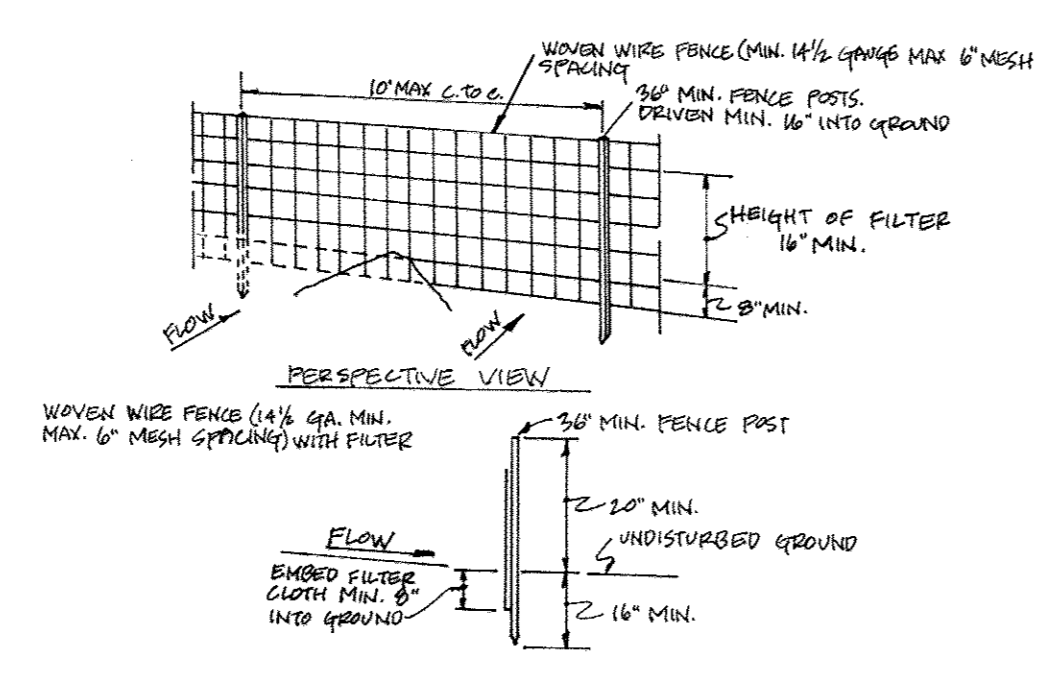 WOVEN WIRE FENCE (MIN. 14 1/2 GAUGE MAX 6" MESH
SPACING
10' MAX C. to C.
36" MIN. FENCE POSTS.
DRIVEN MIN. 16" INTO GROUND
HEIGHT OF FILTER
16" MIN.
8" MIN.
FLOW
FLOW
PERSPECTIVE VIEW
WOVEN WIRE FENCE (14 1/2 GA. MIN.
MAX. 6" MESH SPACING) WITH FILTER
36" MIN. FENCE POST
20" MIN.
FLOW
UNDISTURBED GROUND
EMBED FILTER
CLOTH MIN. 8"
INTO GROUND
16" MIN.